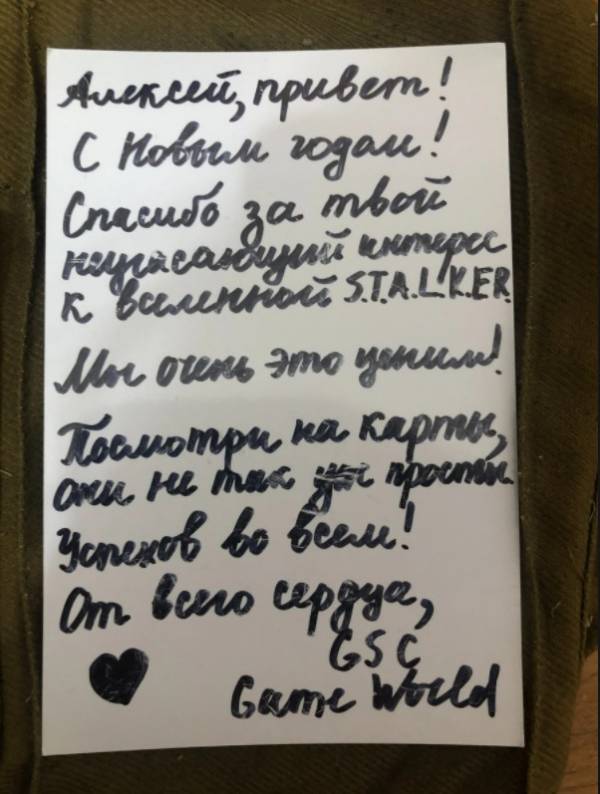 Алексей, привет!
С Новым годом!
Спасибо за твой
неугасающий интерес
к вселенной S.T.A.L.K.E.R.
Мы очень это ценим!
Посмотри на карты,
они не так уж просты.
Успехов во всем!
От всего сердца,
GSC
Game World